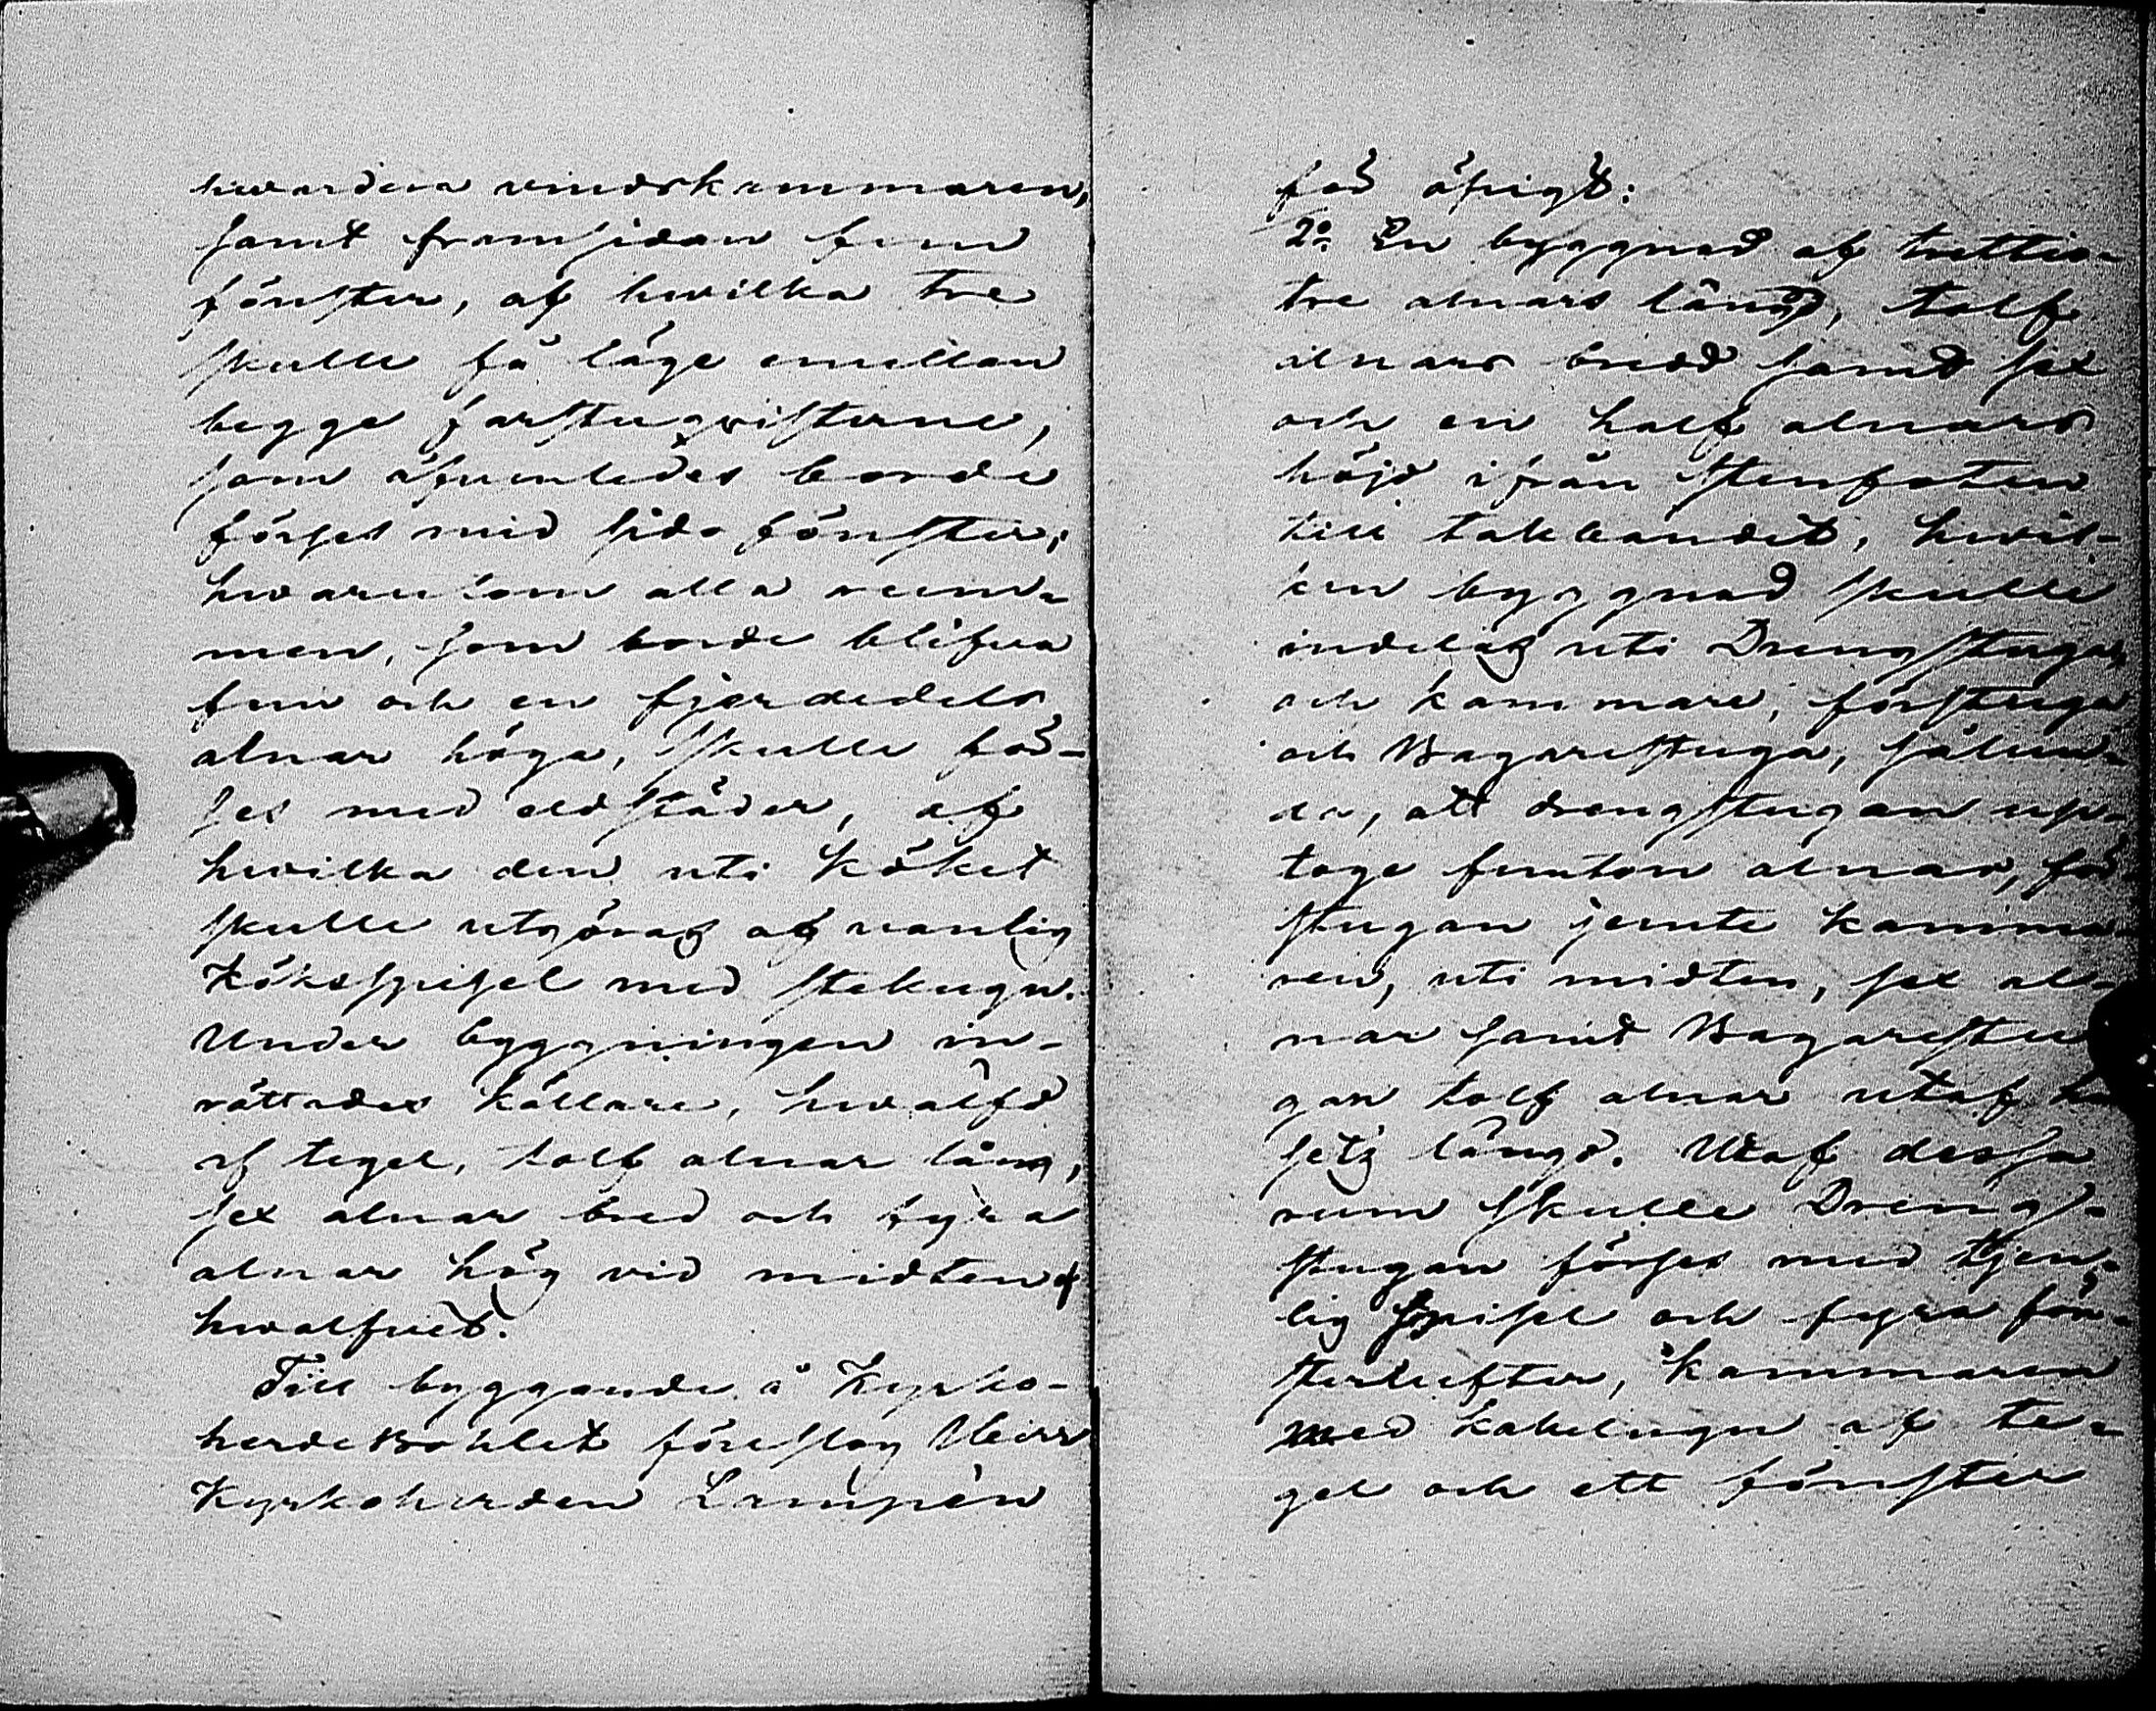 hvardera vindskammaren,
samt framsidan fem
fönster, af hvilka tre
skulle få läge emellan
begge farstuqvisterne,
som äfvenledes borde
förses med sido fönster;
hvarutom alla rum-
men, som borde blifva
fem och en fjerdedels
alnar höga, skulle för-
ses med eldstäder, af
hvilka den uti köket
skulle utgöras af vanlig
Köksspisel med stekugn.
Under byggningen in-
rättades källare, hvälfd
af tegel, tolf alnar lång,
sex alnar bred och fyra
alnar hög vid midten af
hvalfvet.
Till byggande å Kyrko-
herdeBohlet föreslog Herr
Kyrkoherden Lampén
för öfrigt:
2:o En byggnad af trettio-
tre alnars längd, tolf
alnars bredd samt sex
och en half alnars
höjd ifrån stenfoten
till takbandet, hvil-
ken byggnad skulle
indelas uti Drengstuga,
och kammare, förstuga
och Bagarestuga, sålun-
da, att drengstugan up-
toge femton alnar, för
stugan jemte kamma-
ren, uti midten, sex al-
nar samt Bagarestu
gan tolf alnar utaf hu
sets längd. Utaf dessa
rum skulle Dreng-
stugan förses med tjen-
lig spisel och fyra fön-
sterlufter, kammaren
med kakelugn af te-
gel och ett fönster